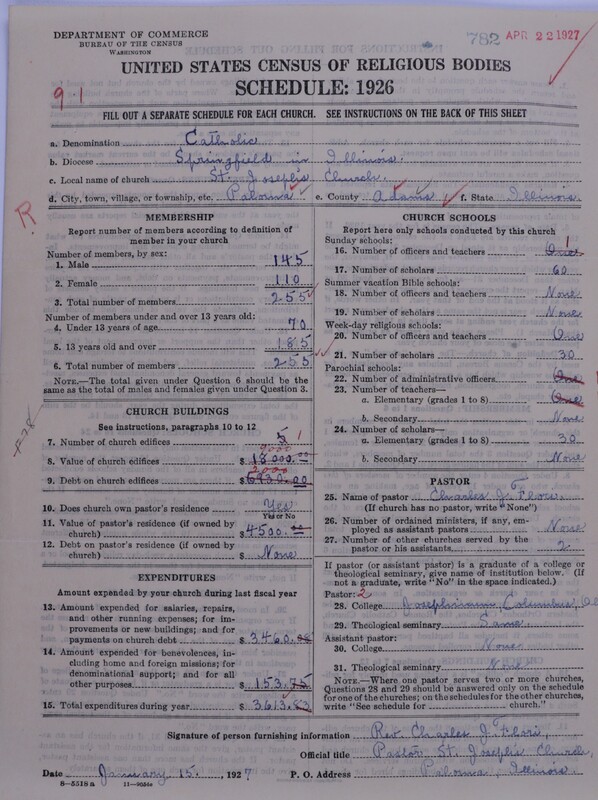 DEPARTMENT OF COMMERCE
BUREAU OF THE CENSUS
WASHINGTON
782 APR 22 1927
UNITED STATES CENSUS OF RELIGIOUS BODIES
SCHEDULE: 1926
9-1
FILL OUT A SEPARATE SCHEDULE FOR EACH CHURCH. SEE INSTRUCTIONS ON THE BACK OF THIS SHEET
a. Denomination Catholic
b. Diocese Springfield in Illinois.
c. Local name of church St. Joseph's Church.
d. City, town, village, or township, etc. Paloma e. County Adams f. State Illinois.
R
MEMBERSHIP
Report number of members according to definition of member in your church
Number of members, by sex:
1. Male 145
2. Female 110
3. Total number of members 255
Number of members under and over 13 years old:
4. Under 13 years of age 70
5. 13 years old and over 185
6. Total number of members 255
NOTE.—The total given under Question 6 should be the same as the total of males and females given under Question 3.
CHURCH BUILDINGS
See instructions, paragraphs 10 to 12
7. Number of church edifices 1
8. Value of church edifices $ 18000.00
9. Debt on church edifices $ 2000
10. Does church own pastor's residence Yes
Yes or No
11. Value of pastor's residence (if owned by church) $ 4500.00
12. Debt on pastor's residence (if owned by church) $ None
EXPENDITURES
Amount expended by your church during last fiscal year
13. Amount expended for salaries, repairs, and other running expenses; for improvements or new buildings; and for payments on church debt $ 3460.
14. Amount expended for benevolences, including home and foreign missions; for denominational support; and for all other purposes $ 153.75
15. Total expenditures during year $ 3613.83
CHURCH SCHOOLS
Report here only schools conducted by this church
Sunday schools:
16. Number of officers and teachers One 1
17. Number of scholars 60
Summer vacation Bible schools:
18. Number of officers and teachers None
19. Number of scholars None
Week-day religious schools:
20. Number of officers and teachers One
21. Number of scholars 30
Parochial schools:
22. Number of administrative officers One
23. Number of teachers—
a. Elementary (grades 1 to 8) One
b. Secondary None
24. Number of scholars—
a. Elementary (grades 1 to 8) 30
b. Secondary None
PASTOR
25. Name of pastor Charles J.
(If church has no pastor, write "None")
26. Number of ordained ministers, if any, employed as assistant pastors None
27. Number of other churches served by the pastor or his assistants 2
If pastor (or assistant pastor) is a graduate of a college or theological seminary, give name of institution below. (If not a graduate, write "No" in the space indicated.)
Pastor: 2
28. College Josephinum, Columbus,
29. Theological seminary Same
Assistant pastor:
30. College None
31. Theological seminary None
NOTE.—Where one pastor serves two or more churches, Questions 28 and 29 should be answered only on the schedule for one of the churches; on the schedules for the other churches, write "See schedule for church."
Signature of person furnishing information Rev. Charles J.
Official title Pastor St. Joseph's Church,
Date January 15, 1927 P. O. Address Paloma, Illinois.
8—5518a